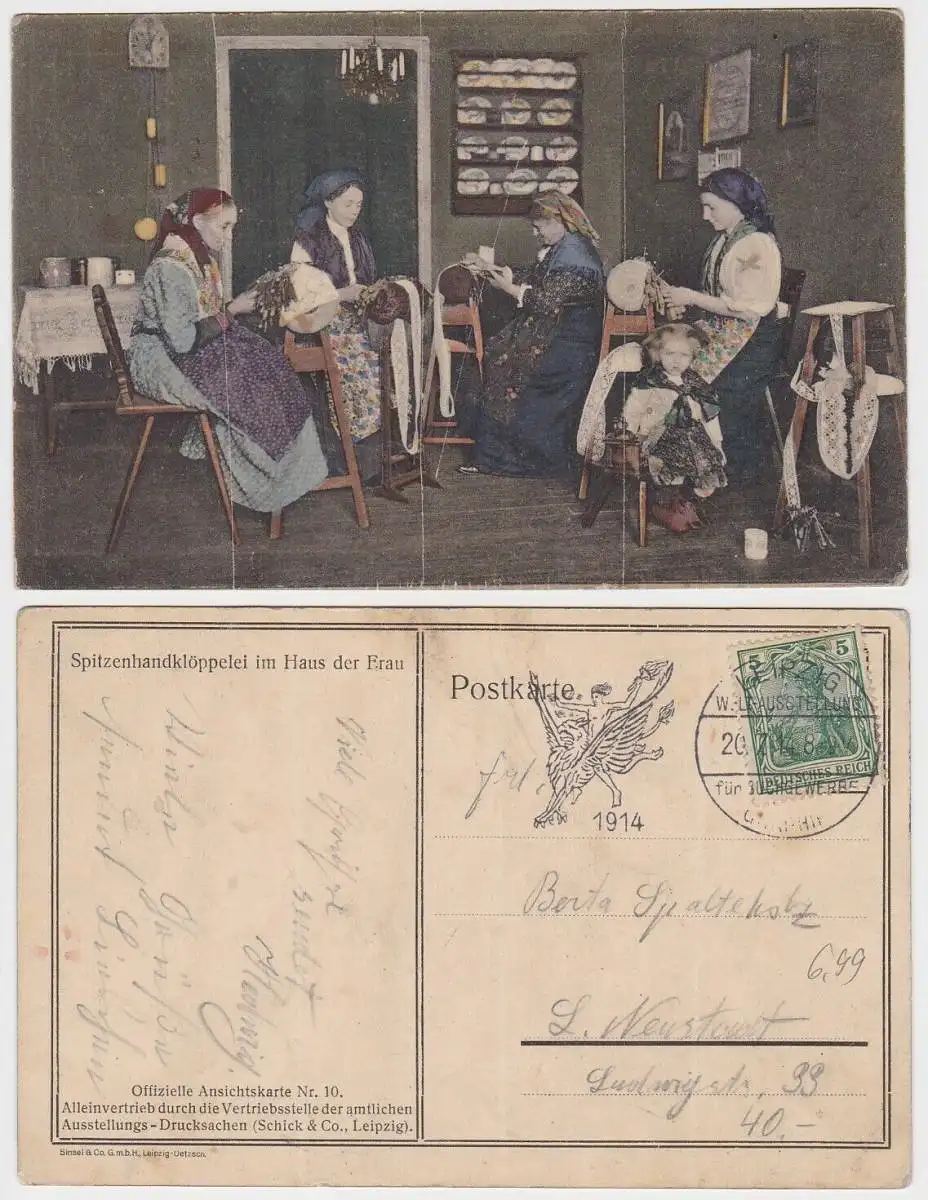 Spitzenhandklöppelei im Haus der Frau
Viele Grüße
sendet
Hedwig.
Offizielle Ansichtskarte Nr. 10.
Alleinvertrieb durch die Vertriebsstelle der amtlichen
Ausstellungs-Drucksachen (Schick & Co., Leipzig).
Sinsel & Co. G.m.b.H., Leipzig-Oetzsch.
Postkarte
1914
LEIPZIG
WELTAUSSTELLUNG
20.7.14. 8-
für BUCHGEWERBE
5 5
DEUTSCHES REICH
Frl.
Berta
6,99
L. Neustadt
Ludwigstr. 33
40.-